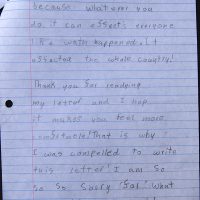 because whatever you
do, it can effects everyone
like watt happened. It
effected the whole country!
Thank you for reading
my letter and I hop
it makes you feel more
comfortable! That is why
I was compelled to write
this letter! I am so
so so sorry for what